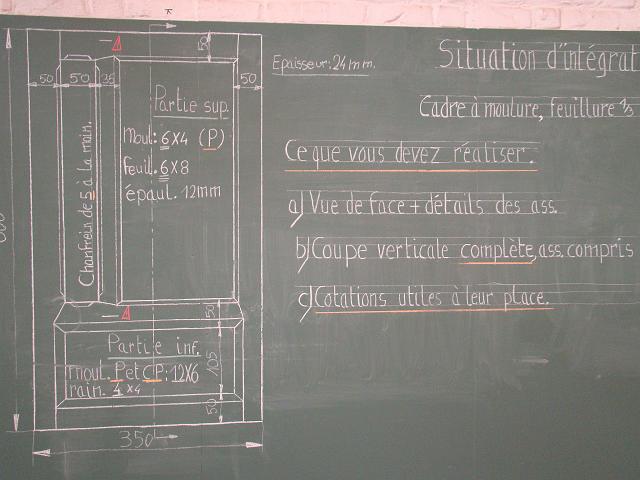 Situation d'intégrat
Cadre à moulure, feuillure 1/3
Epaisseur: 24 mm.
Ce que vous devez réaliser.
a) Vue de face + détails des ass.
b) Coupe verticale complète, ass. compris
c) Cotations utiles à leur place.
50
50 50 25 50
Partie sup.
Moul: 6x4 (P)
Feuil: 6x8
épaul. 12mm
Chanfrein de 5 à la main.
50
Partie inf.
moul. P et CP: 12x6
rain. 4x4
105
50
350